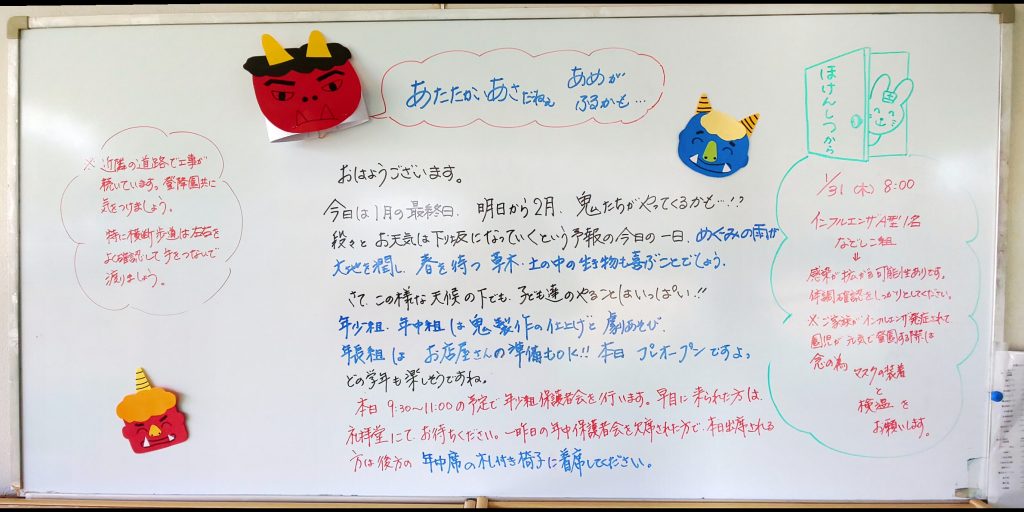 あたたかいあさだねぇ
あめが
ふるかも…
ほけんしつから
※近隣の道路で工事が
続いています。登降園共に
気をつけましょう。
特に横断歩道は左右を
よく確認して手をつないで
渡りましょう。
おはようございます。
今日は1月の最終日、明日から2月、鬼たちがやってくるかも…!?
段々とお天気は下り坂になっていくという予報の今日の一日、めぐみの雨が
大地を潤し、春を待つ草木・土の中の生き物も喜ぶことでしょう。
さて、この様な天候の下でも、子ども達のやることはいっぱい!!
年少組、年中組は鬼製作の仕上げと劇あそび、
年長組は お店屋さんの準備もOKに!!本日プレオープンですよ。
どの学年も楽しそうですね。
本日9:30~11:00の予定で年少組保護者会を行います。早目に来られた方は、
礼拝堂にて、お待ちください。一昨日の年中保護者会を欠席された方で、本日出席される
方は後方の年中席の札付き椅子に着席してください。
1/31(木)8:00
インフルエンザA型1名
なでしこ組
⇓
感染が拡がる可能性あります。
体調確認をしっかりとしてください。
※ご家族がインフルエンザ発症されて
園児が元気で登園する際は
念の為
マスクの装着
と
検温を
お願いします。